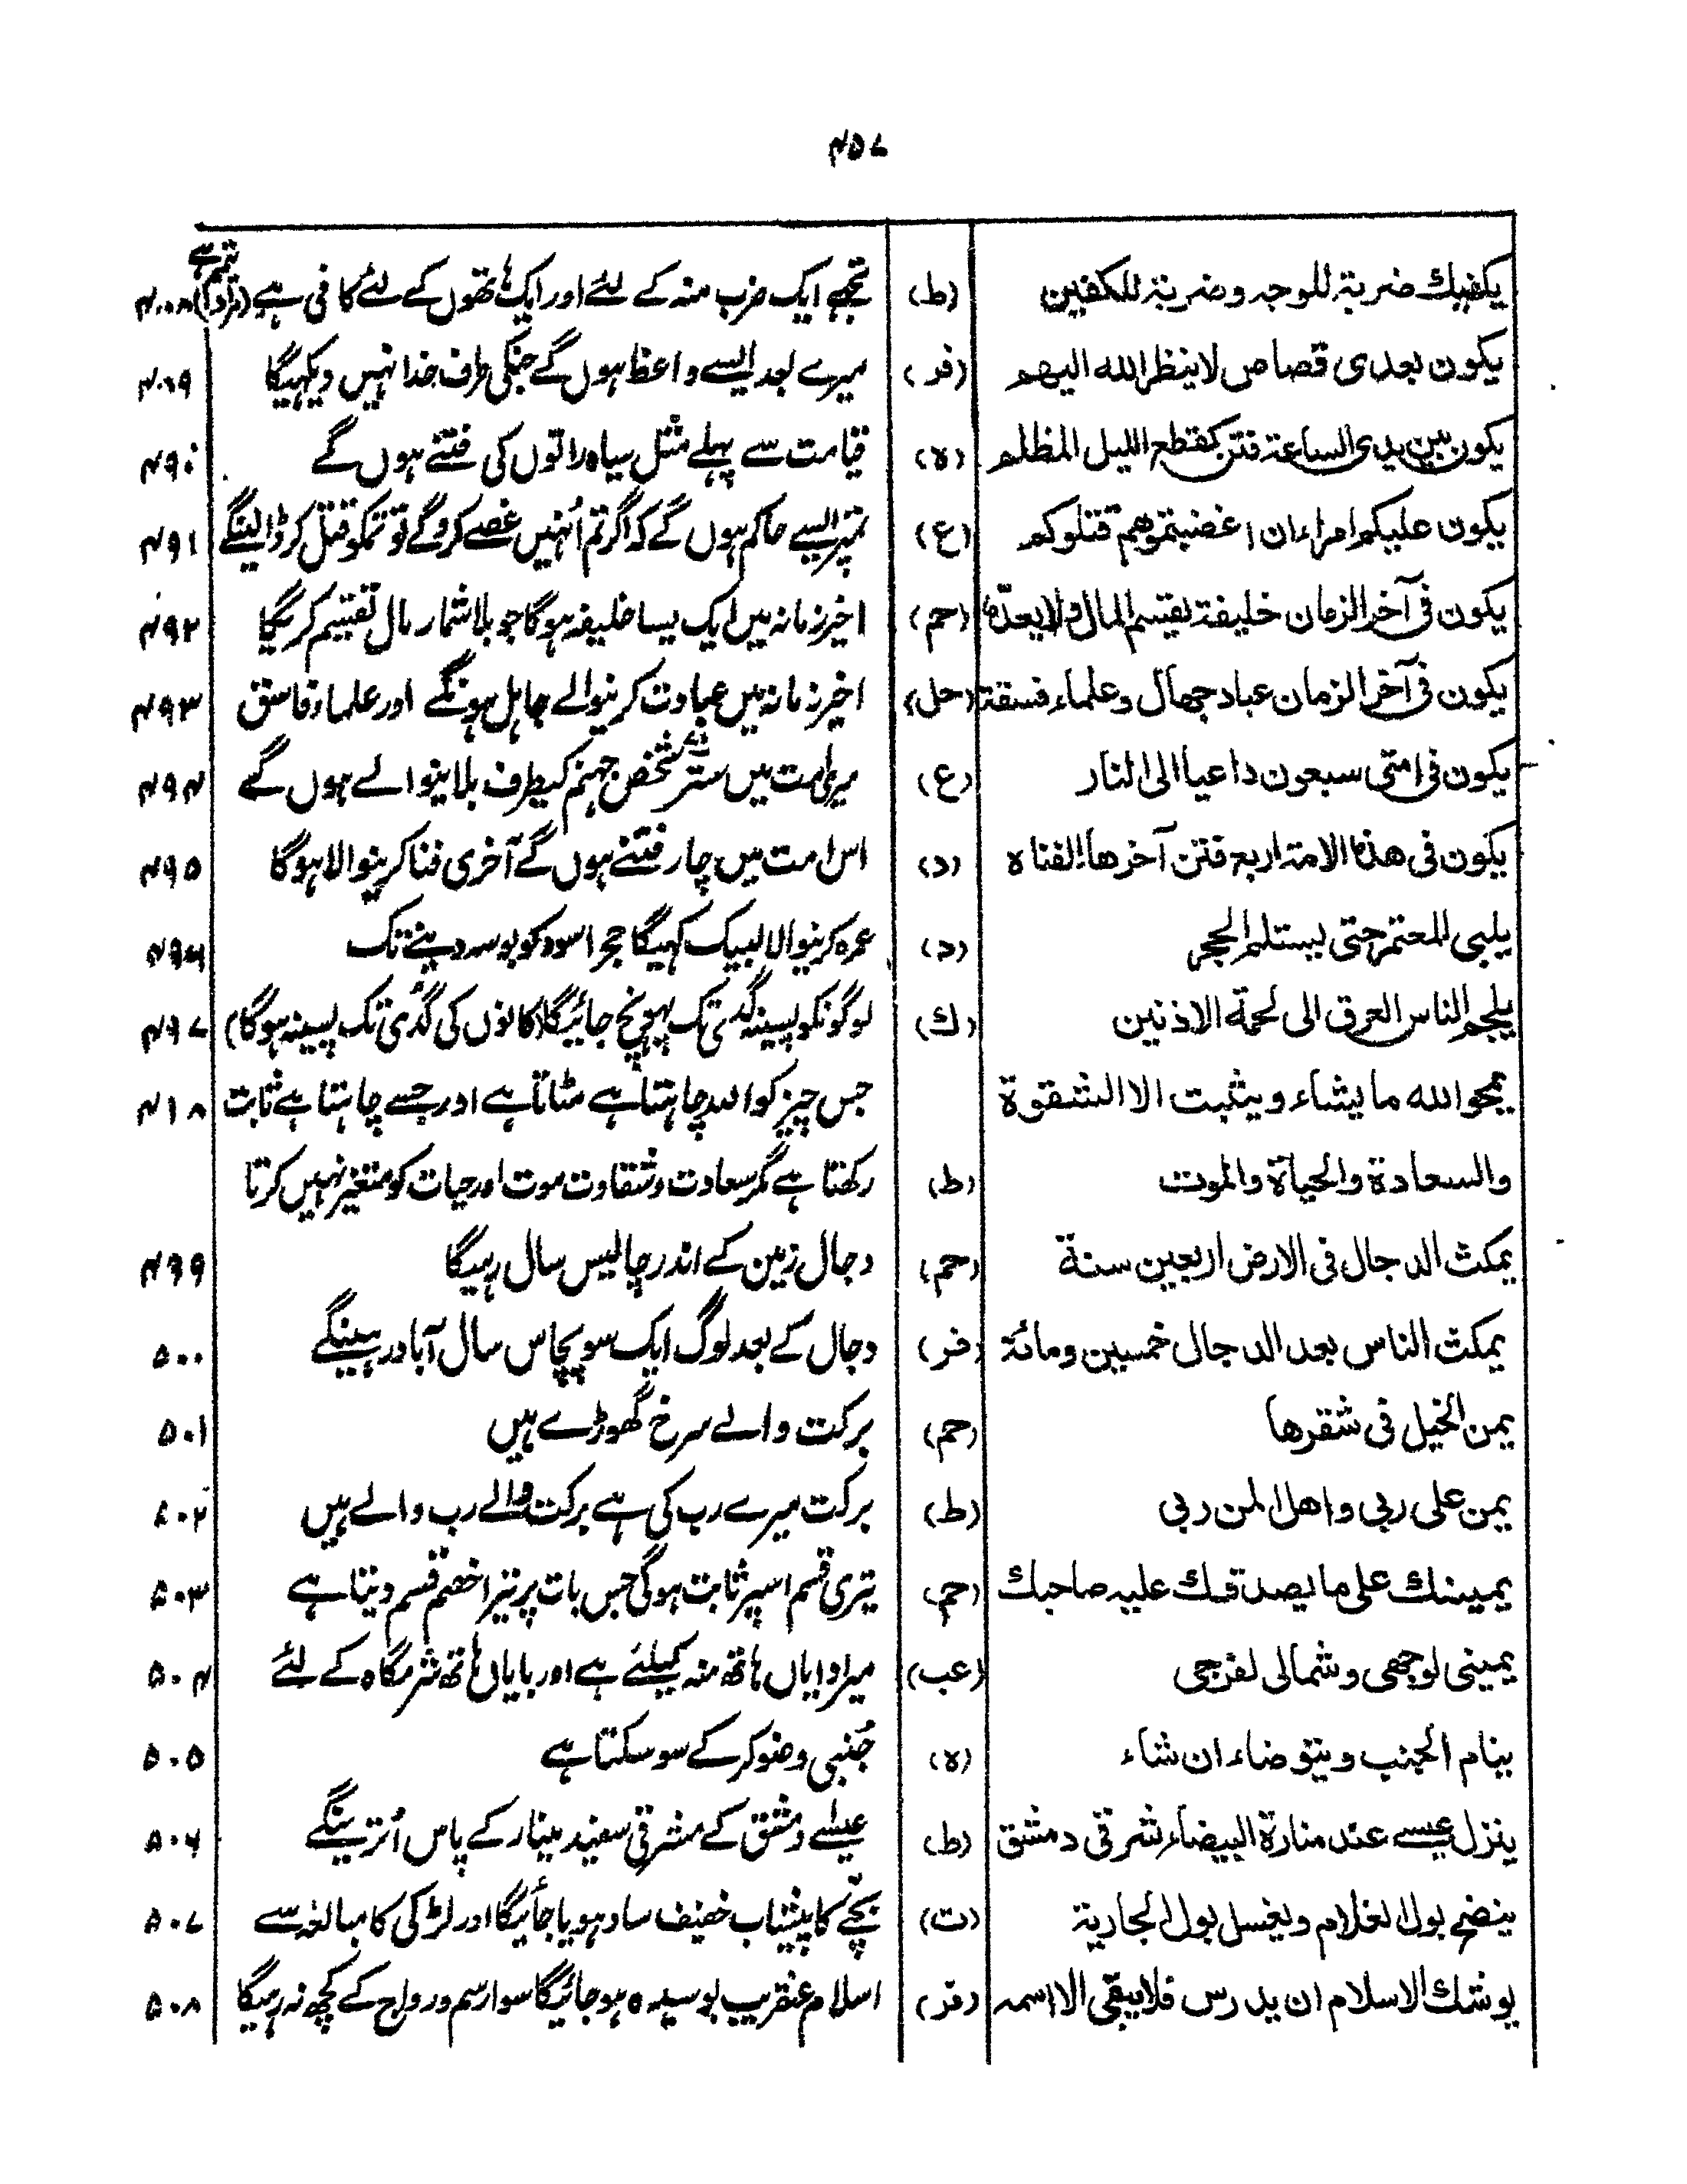 ۴۵۷
يكفيك ضربة للوجه وضربة للكفين (ط) تجھے ایک ضرب منہ کے لئے اور ایک ہاتھوں کے لئے کافی ہے (مراد تیمم ہے) ۴۰۰۸
يكون بعدى قصاص لاينظر الله اليهم (فر) میرے بعد ایسے واعظ ہوں گے جنکی طرف خدا نہیں دیکہیگا ۴۰۸۹
يكون بين يدى الساعة فتن كقطع الليل المظلم (ه) قیامت سے پہلے مثل سیاہ راتوں کی فتنے ہوں گے ۴۹۰
يكون عليكم امراء ان اغضبتموهم قتلوكم (ع) تمپر ایسے حاکم ہوں گے کہ اگر تم اُنہیں غصے کروگے تو تمکو قتل کر ڈالینگے ۴۹۱
يكون فى آخر الزمان خليفة يقسم المال ولا يعدّه (حم) اخیر زمانہ میں ایک یسا خلیفہ ہوگا جو بلا شمار مال تقسیم کریگا ۴۹۲
يكون فى آخر الزمان عباد جهال وعلماء فسقة (حل) اخیر زمانہ میں عبادت کرنیوالے جاہل ہونگے اور علماء فاسق ۴۹۳
يكون فى امتى سبعون داعيا الى النار (ع) میری امت میں ستر شخص جہنم کیطرف بلانیوالے ہوں گے ۴۹۴
يكون فى هذه الامة اربع فتن آخرها الفناه (د) اس امت میں چار فتنے ہوں گے آخری فنا کرنیوالا ہوگا ۴۹۵
يلبى المعتمر حتى يستلم الحجر (د) عمرہ کرنیوالا لبیک کہیگا حجر اسود کو بوسہ دینے تک ۴۹۶
يلجم الناس العرق الى لحمة الاذنين (ك) لوگونکو پسینہ گدی تک پہونچ جائیگا (کانوں کی گدّی تک پسینہ ہوگا) ۴۹۷
يمحوا الله ما يشاء ويثبت الا الشقوة جس چیز کو اللہ چاہتا ہے مٹاتا ہے اور جسے چاہتا ہے ثابت ۴۱۸
والسعادة والحياة والموت (ط) رکھتا ہے مگر سعادت وشقاوت موت اور حیات کو متغیر نہیں کرتا
يمكث الدجال فى الارض اربعين سنة (حم) دجال زمین کے اندر چالیس سال رہیگا ۴۹۹
يمكث الناس بعد الدجال خمسين ومائة (فر) دجال کے بعد لوگ ایک سو پچاس سال آباد رہینگے ۵۰۰
يمن الخيل فى شقرها (حم) برکت والے سرخ گھوڑے ہیں ۵۰۱
يمن على ربى واهل المن ربى (ط) برکت میرے رب کی ہے برکت والے رب والے ہیں ۵۰۲
يمينك على ما يصدقك عليه صاحبك (حم) تیری قسم اسپر ثابت ہوگی جس بات پر تیرا خصم قسم دیتا ہے ۵۰۳
يمينى لوجهى وشمالى لفرجى (عب) میرا دایاں ہاتھ منہ کیلئے ہے اور بایاں ہاتھ شرمگاہ کے لئے ۵۰۴
ينام الجنب ويتوضاء ان شاء (ه) جُنبی وضو کرکے سو سکتا ہے ۵۰۵
ينزل عيسے عند منارة البيضاء شرقى دمشق (ط) عیسٰے دمشق کے مشرقی سفید مینار کے پاس اُترینگے ۵۰۶
ينضح بول الغلام ويغسل بول الجارية (ت) بچّے کا پیشاب خفیف سا دہویا جائیگا اور لڑکی کا مبالغہ سے ۵۰۷
يوشك الاسلام ان يدرس فلا يبقى الا اسمه (فر) اسلام عنقریب بوسیدہ ہو جائیگا سوا رسم ورواج کے کچھ نہ رہیگا ۵۰۸